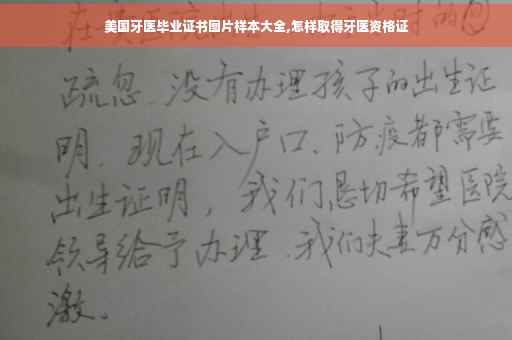 美国牙医毕业证书图片样本大全,怎样取得牙医资格证
疏忽.没有办理孩子的出生证
明.现在入户口、防疫都需要
出生证明，我们恳切希望医院
领导给予办理.我们夫妻万分感
激。